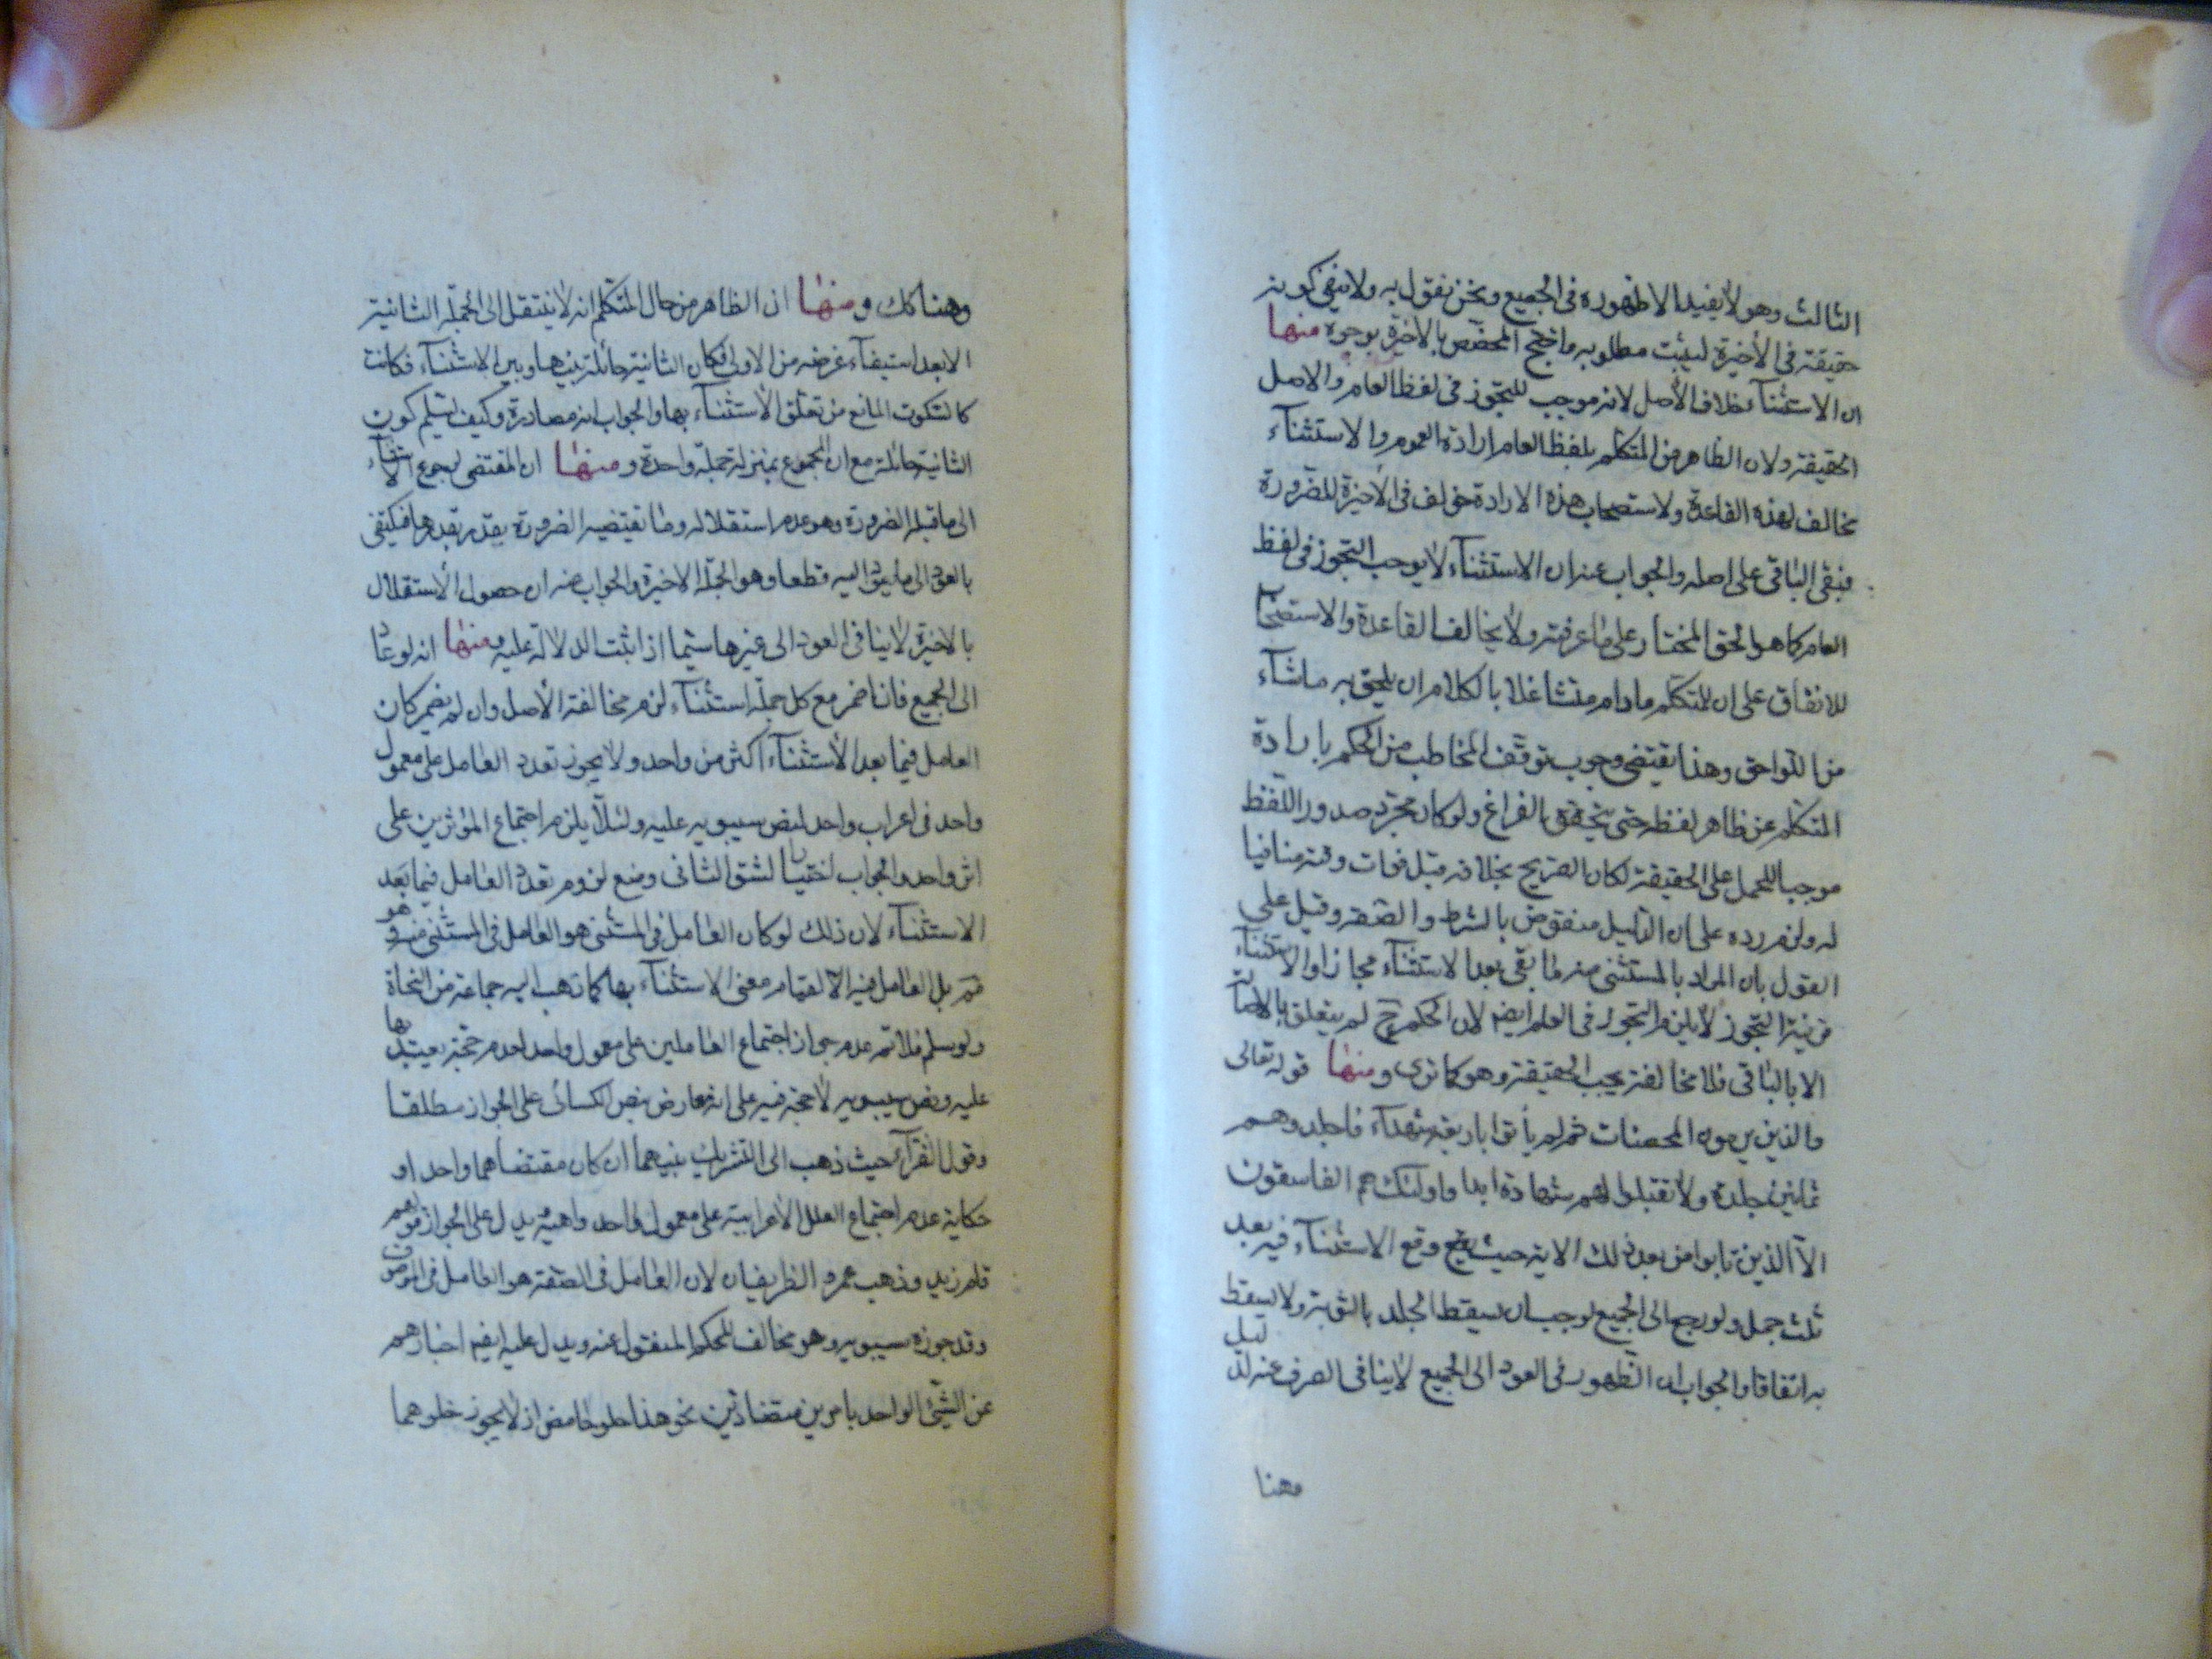 الثالث وهو لا يفيد الا ظهوره فى الجميع ونحن نقول به ولا ينفى كونه
حقيقة فى الأخيرة ليثبت مطلوبه واحتج المخصص بالأخيرة بوجوه منها
ان الاستثناء خلاف الأصل لانه موجب للتجوز فى لفظ العام والاصل
الحقيقة ولان الظاهر من المتكلم بلفظ العام ارادة العموم والاستثناء
مخالف لهذه القاعدة ولاستصحاب هذه الارادة خولف فى الأخيرة للضرورة
فبقى الباقى على اصله والجواب عنه ان الاستثناء لا يوجب التجوز فى لفظ
العام كما هو الحق المختار على ما عرفته ولا يخالف القاعدة والاستصحاب
للاتفاق على ان للمتكلم مادام متشاغلا بالكلام ان يلحق به ماشاء
من اللواحق وهذا يقتضى وجوب توقف المخاطب من الحكم بارادة
المتكلم عن ظاهر لفظه حتى يتحقق الفراغ ولو كان مجرد صدور اللفظ
موجبا للحمل على الحقيقة لكان التصريح بخلافه قبل فوات وقته منافيا
له ولزم رده على ان الدليل منقوض بالشرط والصفة وقيل على
القول بان المراد بالمستثنى منه ما بقى بعد الاستثناء مجازا والاستثناء
قرينة التجوز لا يلزم التجوز فى العام ايضا لان الحكم ح لم يتعلق بالاصالة
الا بالباقى فلا مخالفة بحسب الحقيقة وهو كما ترى ومنها قوله تعالى
والذين يرمون المحصنات ثم لم يأتوا باربعة شهداء فاجلدوهم
ثمانين جلدة ولا تقبلوا لهم شهادة ابدا واولئك هم الفاسقون
الا الذين تابوا من بعد ذلك الاية حيث وقع الاستثناء فيه بعد
ثلث جمل ولو رجع الى الجميع لوجب ان يسقط الجلد بالتوبة ولا يسقط
به اتفاقا والجواب ان الظهور فى العود الى الجميع لا ينافى الصرف عنه لدليل
وهنا
وهنا كك ومنها ان الظاهر من حال المتكلم انه لا ينتقل الى الجملة الثانية
الا بعد استيفاء غرضه من الاولى فكان الثانية حائلة بينها وبين الاستثناء فكانت
كالسكوت المانع من تعلق الاستثناء بها والجواب انه مصادرة وكيف يسلم كون
الثانية حائلة مع ان المجموع بمنزلة جملة واحدة ومنها ان المقتضى لرجوع الاستثناء
الى ما قبله الضرورة وهو عدم استقلاله وما تقتضيه الضرورة يقدر بقدرها فيكتفى
بالعود الى ما يعود اليه قطعا وهو الجملة الاخيرة والجواب منه ان حصول الاستقلال
بالاخيرة لا ينافى العود الى غيرها سيما اذا ثبت الدلالة عليه ومنها انه لو عاد
الى الجميع فان اضمر مع كل جملة استثناء لزم مخالفة الأصل وان لم يضمر كان
العامل فيما بعد الاستثناء اكثر من واحد ولا يجوز تعدد العامل على معمول
واحد فى اعراب واحد لنص سيبويه عليه ولئلا يلزم اجتماع المؤثرين على
اثر واحد والجواب اختيار الشق الثانى ومنع لزوم تعدد العامل فيما بعد
الاستثناء لان ذلك لو كان العامل فى المستثنى هو العامل فى المستثنى منه وهو
مم بل العامل فيه الا لقيام معنى الاستثناء بها كما ذهب اليه جماعة من النحاة
ولو سلم فلا تم عدم جواز اجتماع العاملين على معمول واحد لعدم حجة يعتد بها
عليه ونص سيبويه لا حجة فيه على انه معارض بنص الكسائى على الجواز مطلقا
وقول الفراء حيث ذهب الى التشريك بينهما ان كان مقتضاهما واحد او
حكاية عدم اجتماع العلل الاعرابية على معمول واحد واهية ويدل على الجواز قولهم
قام زيد وذهب عمرو الظريفان لان العامل فى الصفة هو العامل فى الموصوف
وقد جوزه سيبويه وهو مخالف للحكم المنقول عنه ويدل عليه ايضا اخبارهم
عن الشئ الواحد بامرين متضادين نحو هذا حلو حامض اذ لا يجوز خلوهما